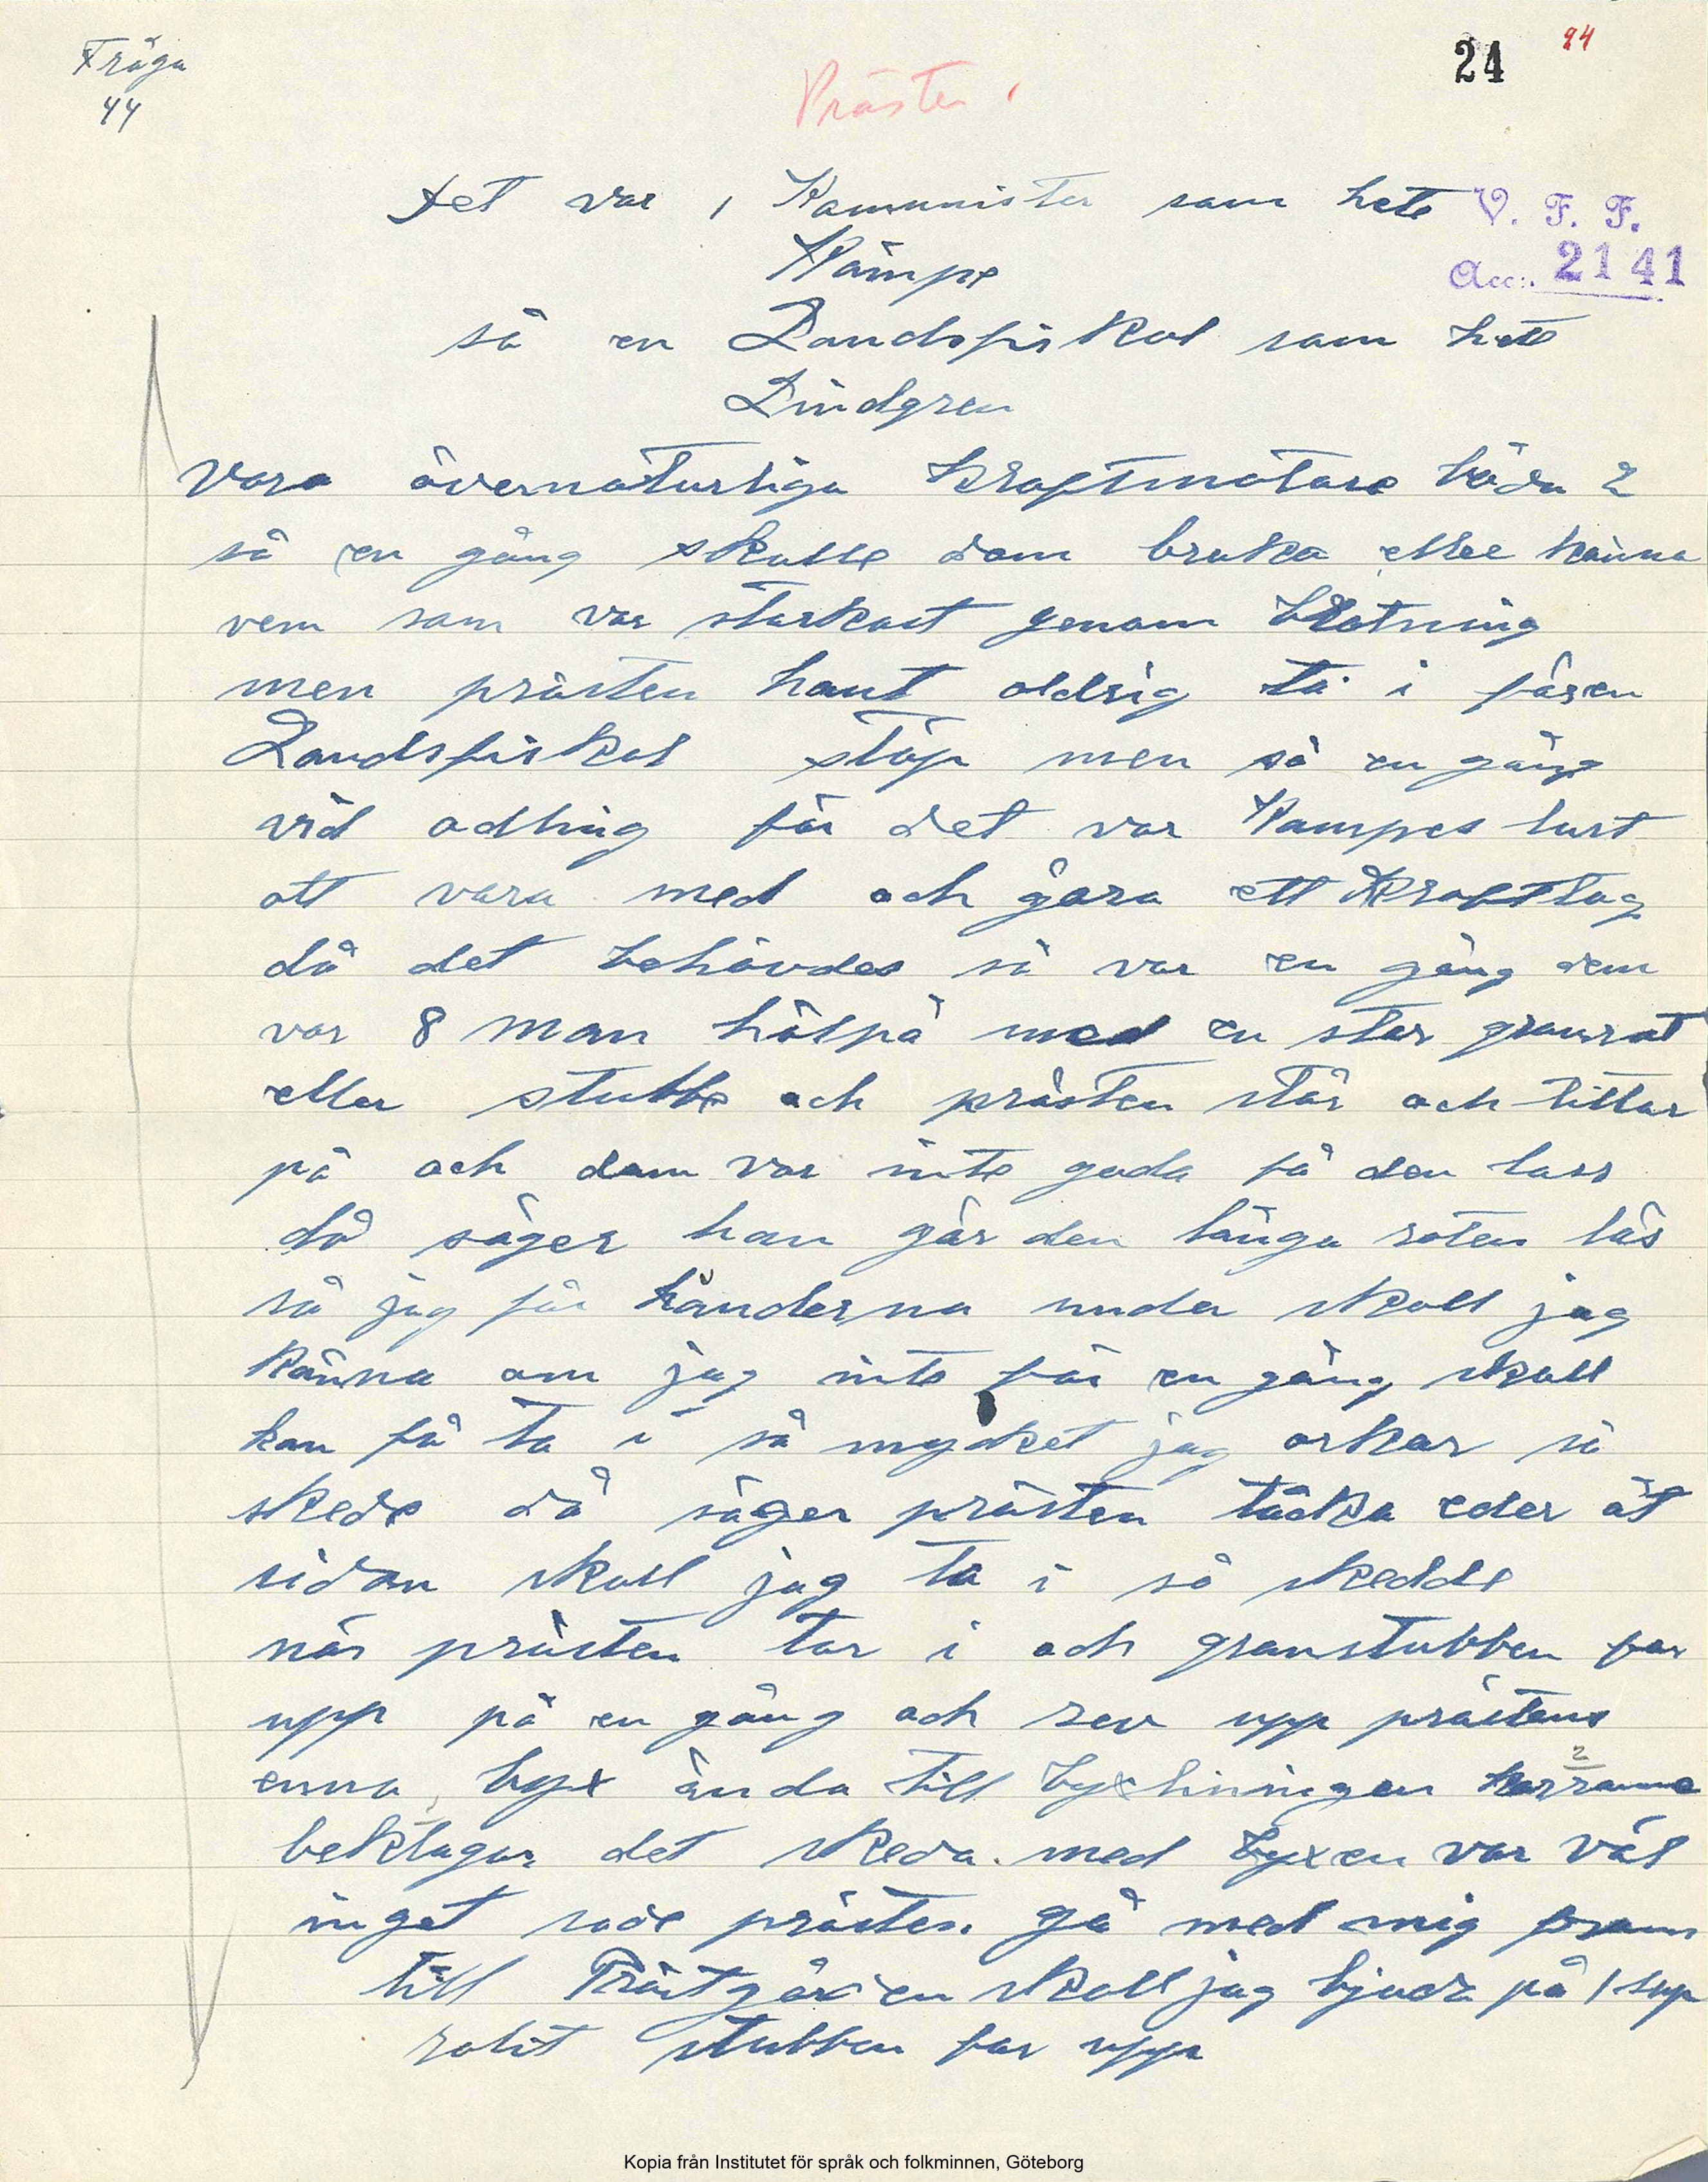 Fråga
44
24
24
Präster
Det var 1 Kommunister som hete
V. F. F.
Kämpe
Acc. 2141
så en Landsfiskal som hete
Lindgren
Vora övernaturliga Kraftmätare båda 2
så en gång skulle dom bruka eller känna
vem som var starkast genom brotning
men prästen hant aldrig ta i fören
Landsfiskal stöp men så en gång
vid odling för det var Kampes lust
att vara med och göra ett Kraftag
då det behövdes så var en gång dem
var 8 man hölpå med en stor granrot
eller stubbe och prästen står och tittar
på och dem var inte goda få den loss
då säger han gör den långa roten lös
så jag får händerna under skall jag
känna om jag inte för en gång skull
kan få ta i så mycket jag orkar så
skede då säger prästen täcka eder åt
sidan skall jag ta i så skedde
när prästen tar i och granstubben far
upp på en gång och rev upp prästens
enna byx ända till byxliningen karrarna
2
beklagar det skeda med byxen var väl
inget sade prästen gå med mig fram
till Prästgården skall jag bjuda på 1 sup
rakt stubben far upp
Kopia från Institutet för språk och folkminnen, Göteborg